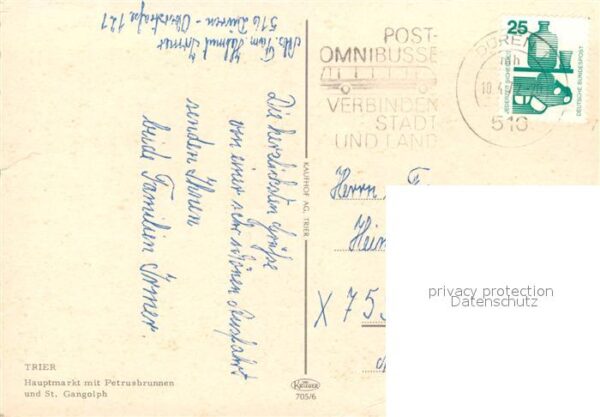 Abs. Fam. Helmut Irmer
516 Düren - Oberstraße 121
Die herzlichsten Grüße
von einer sehr schönen Ausfahrt
senden Ihnen
beide Familien Irmer.
TRIER
Hauptmarkt mit Petrusbrunnen
und St. Gangolph
KAUFHOF AG, TRIER
KRÜGER
705/6
POST-
OMNIBUSSE
VERBINDEN
STADT
UND LAND
DÜREN
mh
516
25
JEDERZEIT SICHERHEIT
DEUTSCHE BUNDESPOST
Herrn
X 755
privacy protection
Datenschutz